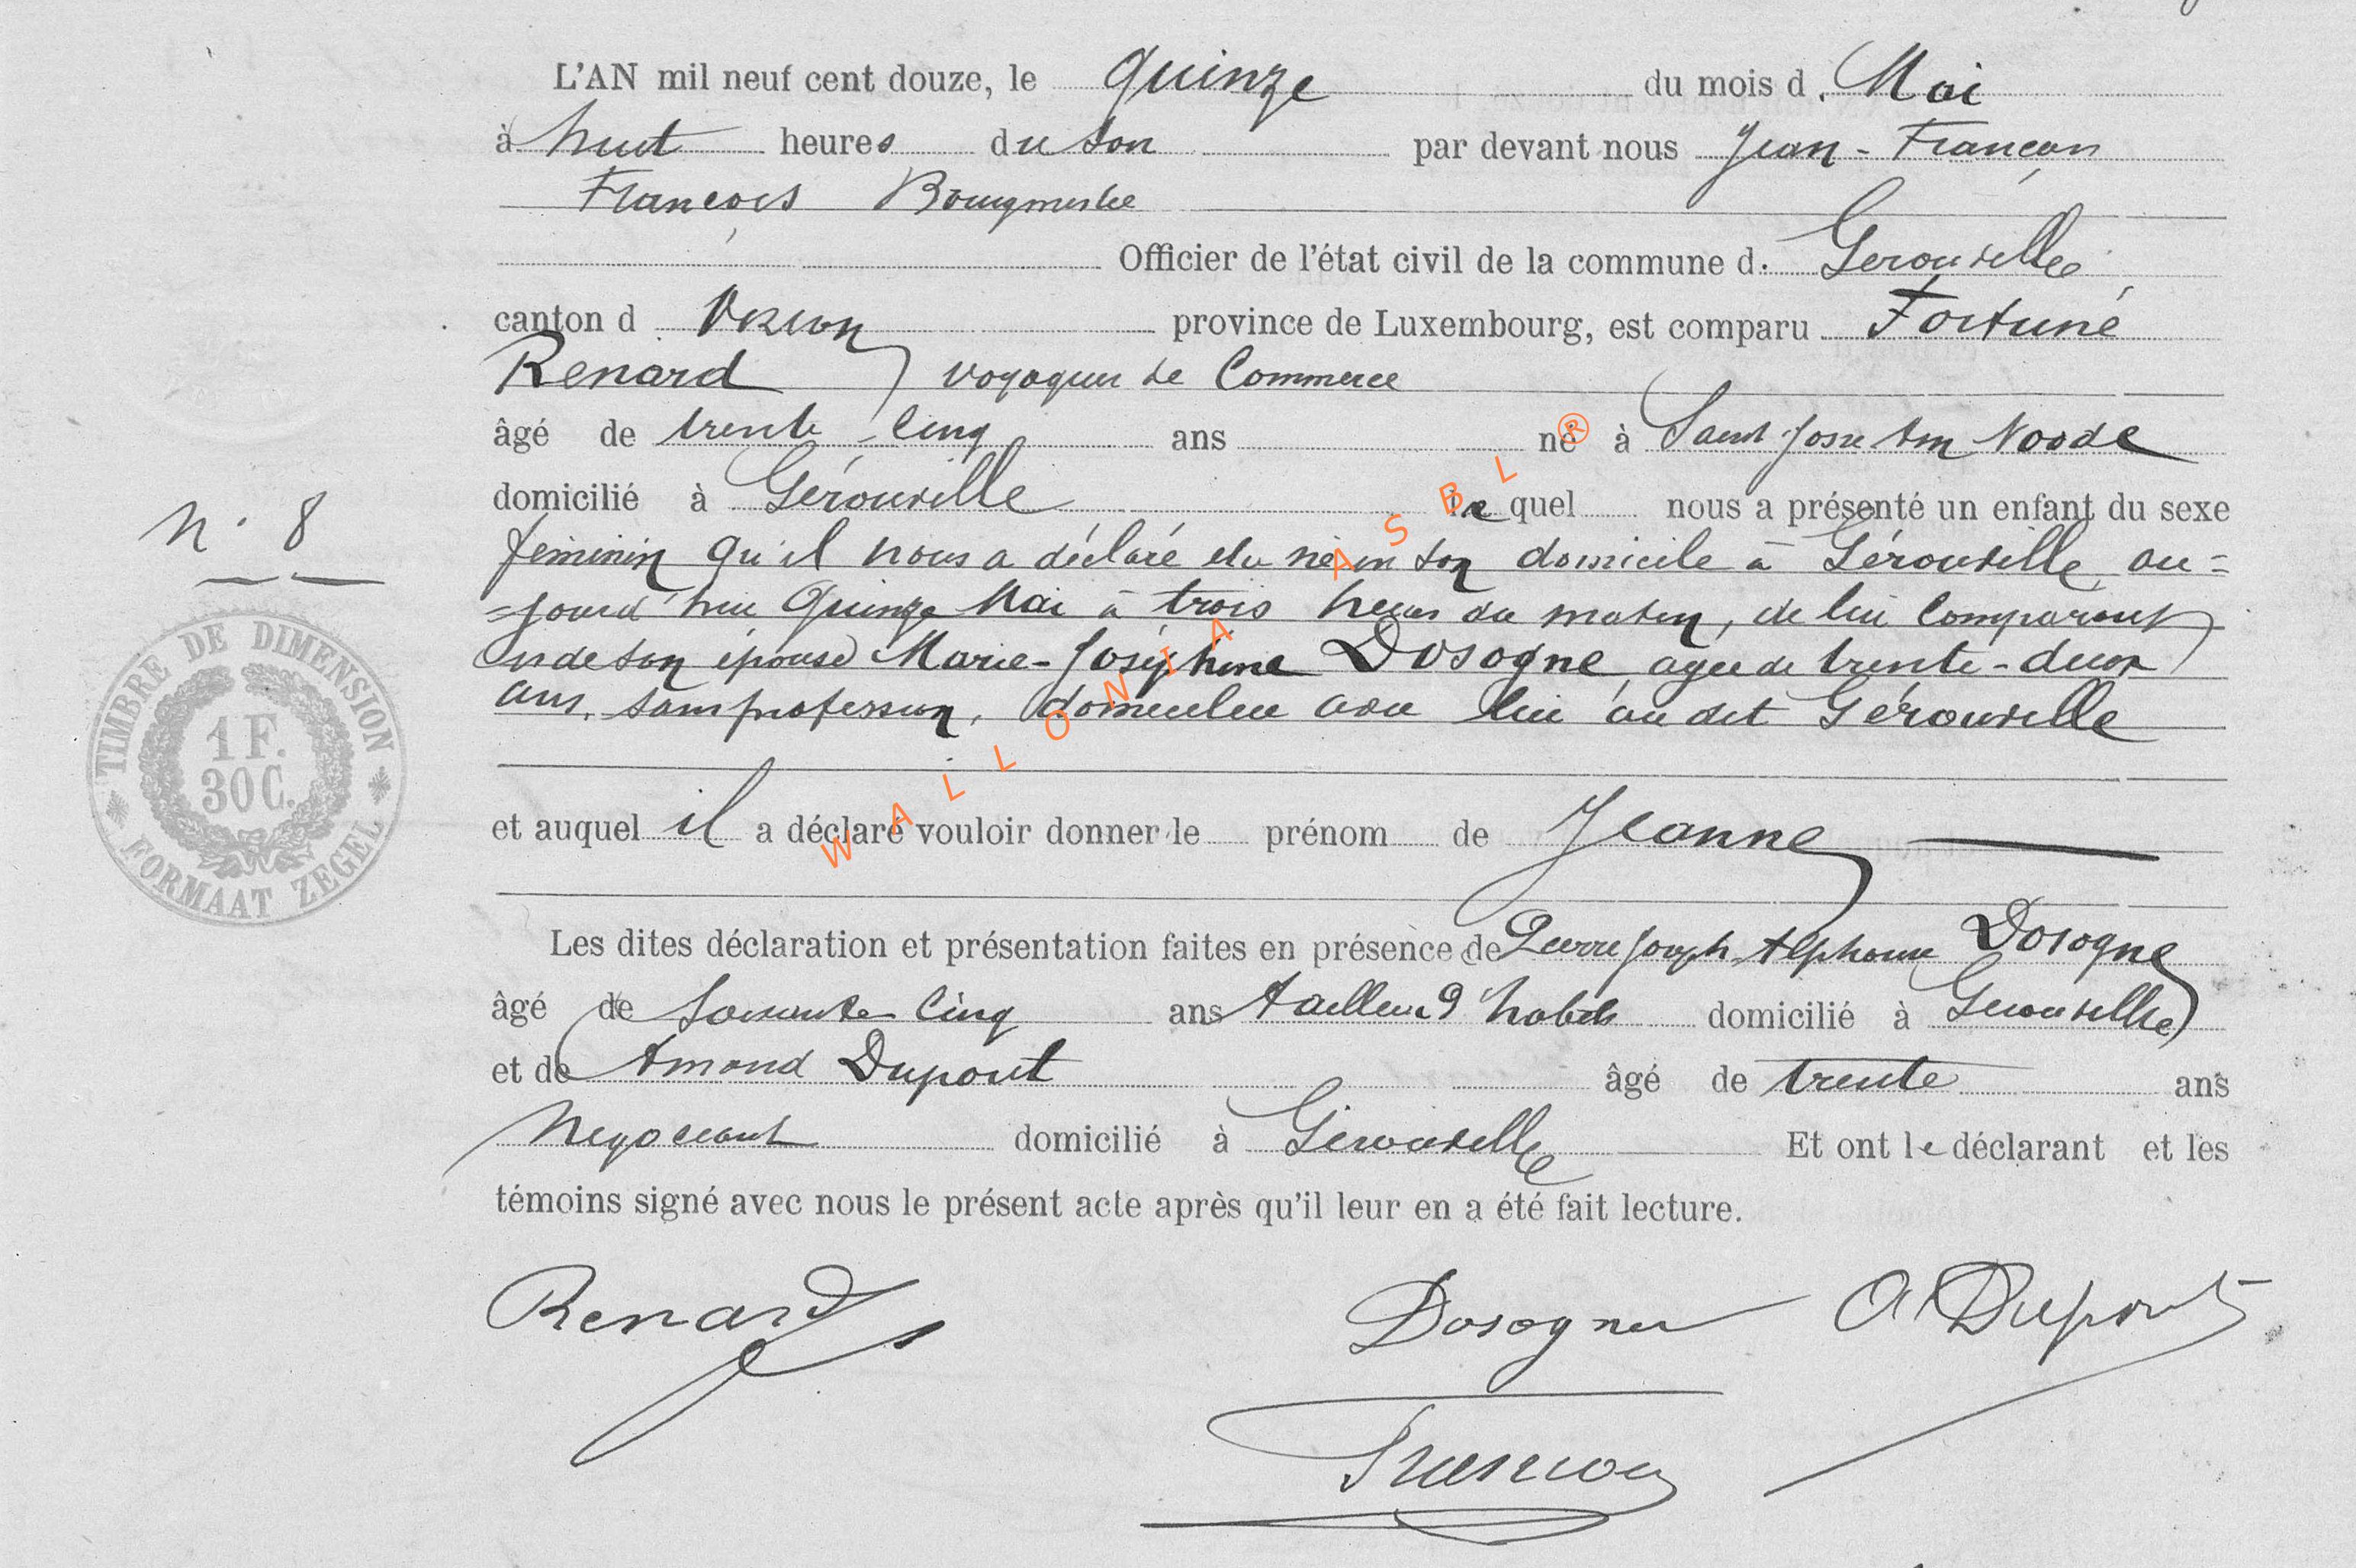 L'AN mil neuf cent douze, le quinze du mois d. Mai
à huit heures du soir par devant nous Jean-François
François Bourgmestre
Officier de l'état civil de la commune d. Gérouville
canton d Virton province de Luxembourg, est comparu Fortuné
Renard, voyageur de Commerce
âgé de trente-cinq ans né à Saint Josse ten Noode
domicilié à Gérouville lequel nous a présenté un enfant du sexe
N° 8
féminin qu'il nous a déclaré être né en son domicile à Gérouville, au=
=jourd'hui quinze Mai à trois heures du matin, de lui comparant
et de son épouse Marie-Joséphine Dosogne, agée de trente-deux
ans, sans profession, domiciliée avec lui au dit Gérouville
TIMBRE DE DIMENSION
1 F.
30 C.
FORMAAT ZEGEL
et auquel il a déclaré vouloir donner le prénom de Jeanne
Les dites déclaration et présentation faites en présence de Pierre Joseph Alphonse Dosogne
âgé de soixante cinq ans tailleur d'habits domicilié à Gérouville
et de Amand Dupont âgé de trente ans
Négociant domicilié à Gérouville Et ont le déclarant et les
témoins signé avec nous le présent acte après qu'il leur en a été fait lecture.
Renard Dosogne A Dupont
WALLONIA ASBL ®